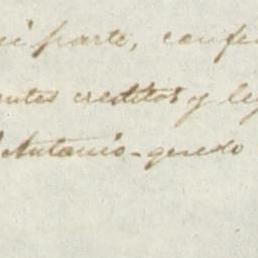 mi parte, confe
ntes creditos y le
Antonio - quedo